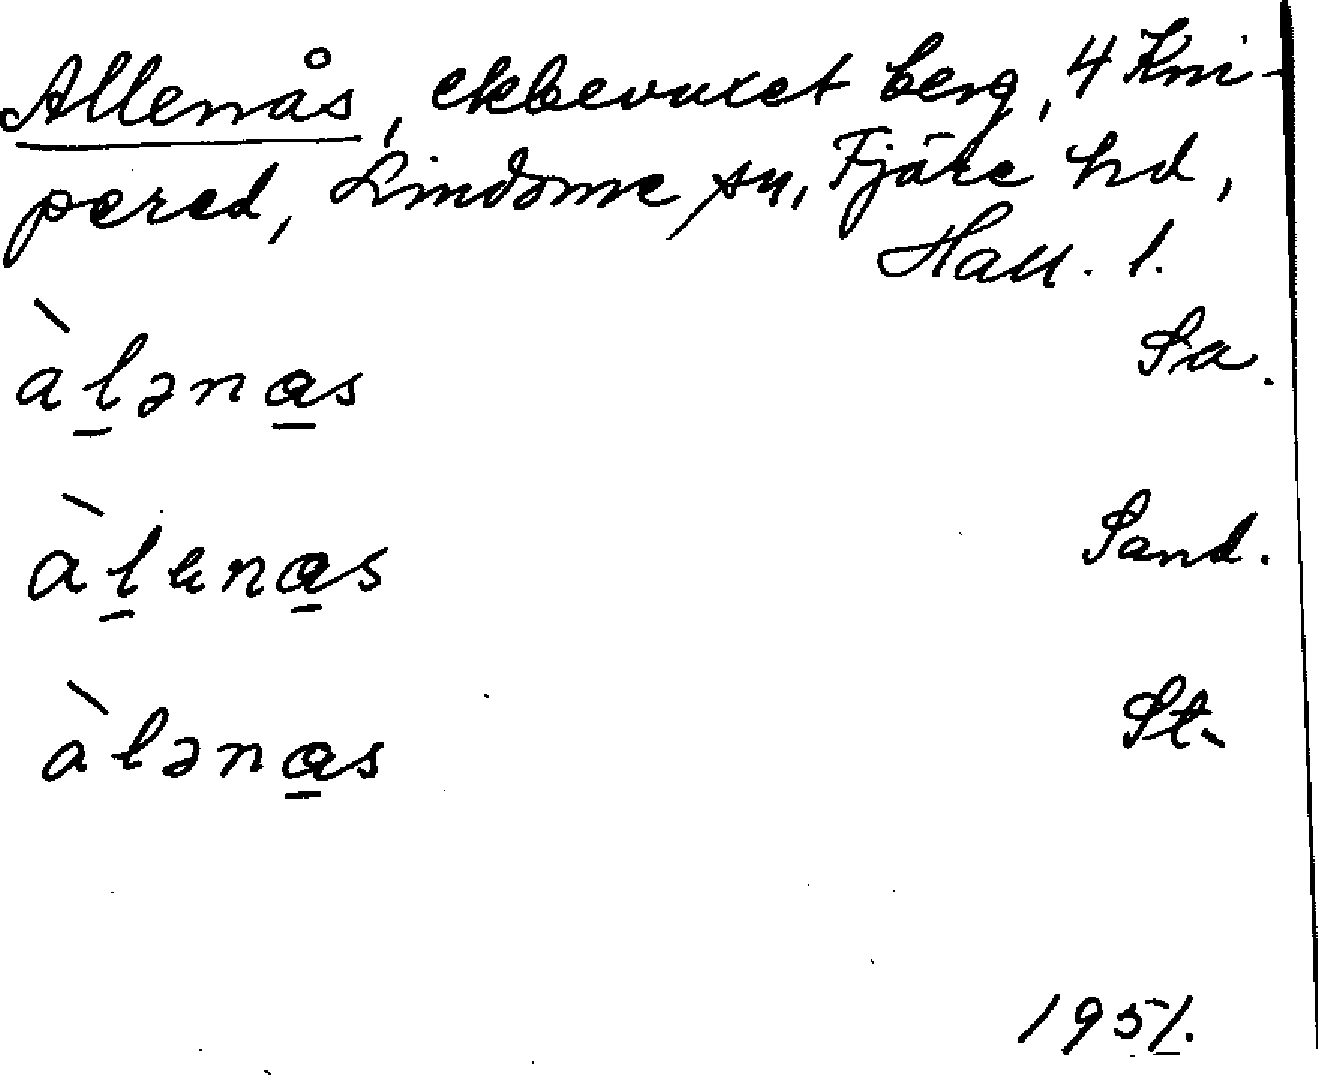 Allenås, ekbevuxet berg, 4 Kni-
pered, Lindome sn, Fjäre hd,
Hall. l.
àl̲əna̲s Sa.
àl̲ena̲s Sand.
àləna̲s St.
1951.